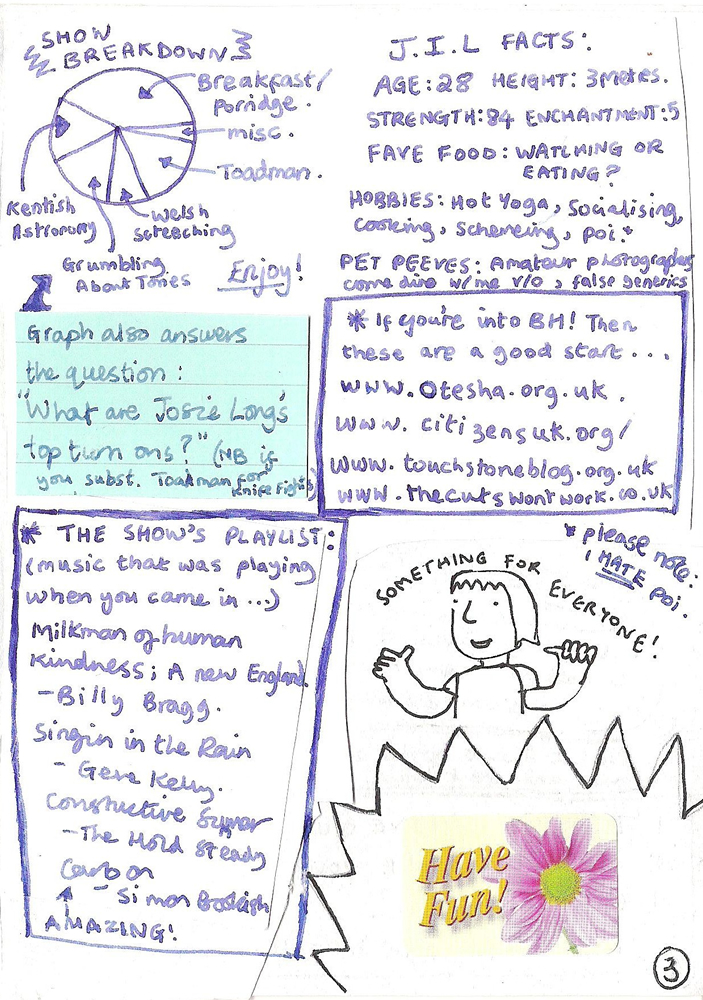 SHOW
BREAKDOWN
Breakfast/
Porridge.
misc.
Toadman.
Kentish
Astronomy
Welsh
screeching
Grumbling
About Tories
Enjoy!
J.I.L FACTS:
AGE: 28 HEIGHT: 3metres.
STRENGTH: 84 ENCHANTMENT: 5
FAVE FOOD: WATCHING OR
EATING?
HOBBIES: Hot Yoga, Socialising,
cooking, schemeing, poi.*
PET PEEVES: Amateur photographers
come dine w/me v/o, false generics
Graph also answers
the question:
"What are Josie Long's
top turn ons?" (NB if
you subst. Toadman for
knife fights)
* If you're into BH! Then
these are a good start...
www.otesha.org.uk.
www.citizensuk.org/
www.touchstoneblog.org.uk
www.thecutswontwork.co.uk
* THE SHOW'S PLAYLIST:
(music that was playing
when you came in...)
Milkman of human
kindness; A new England
- Billy Bragg.
Singin in the Rain
- Gene Kelly.
Constructive Summer
- The Hold Steady
Carbon
- Simon Bookish
AMAZING!
* please note:
I HATE poi.
SOMETHING FOR EVERYONE!
Have
Fun!
3